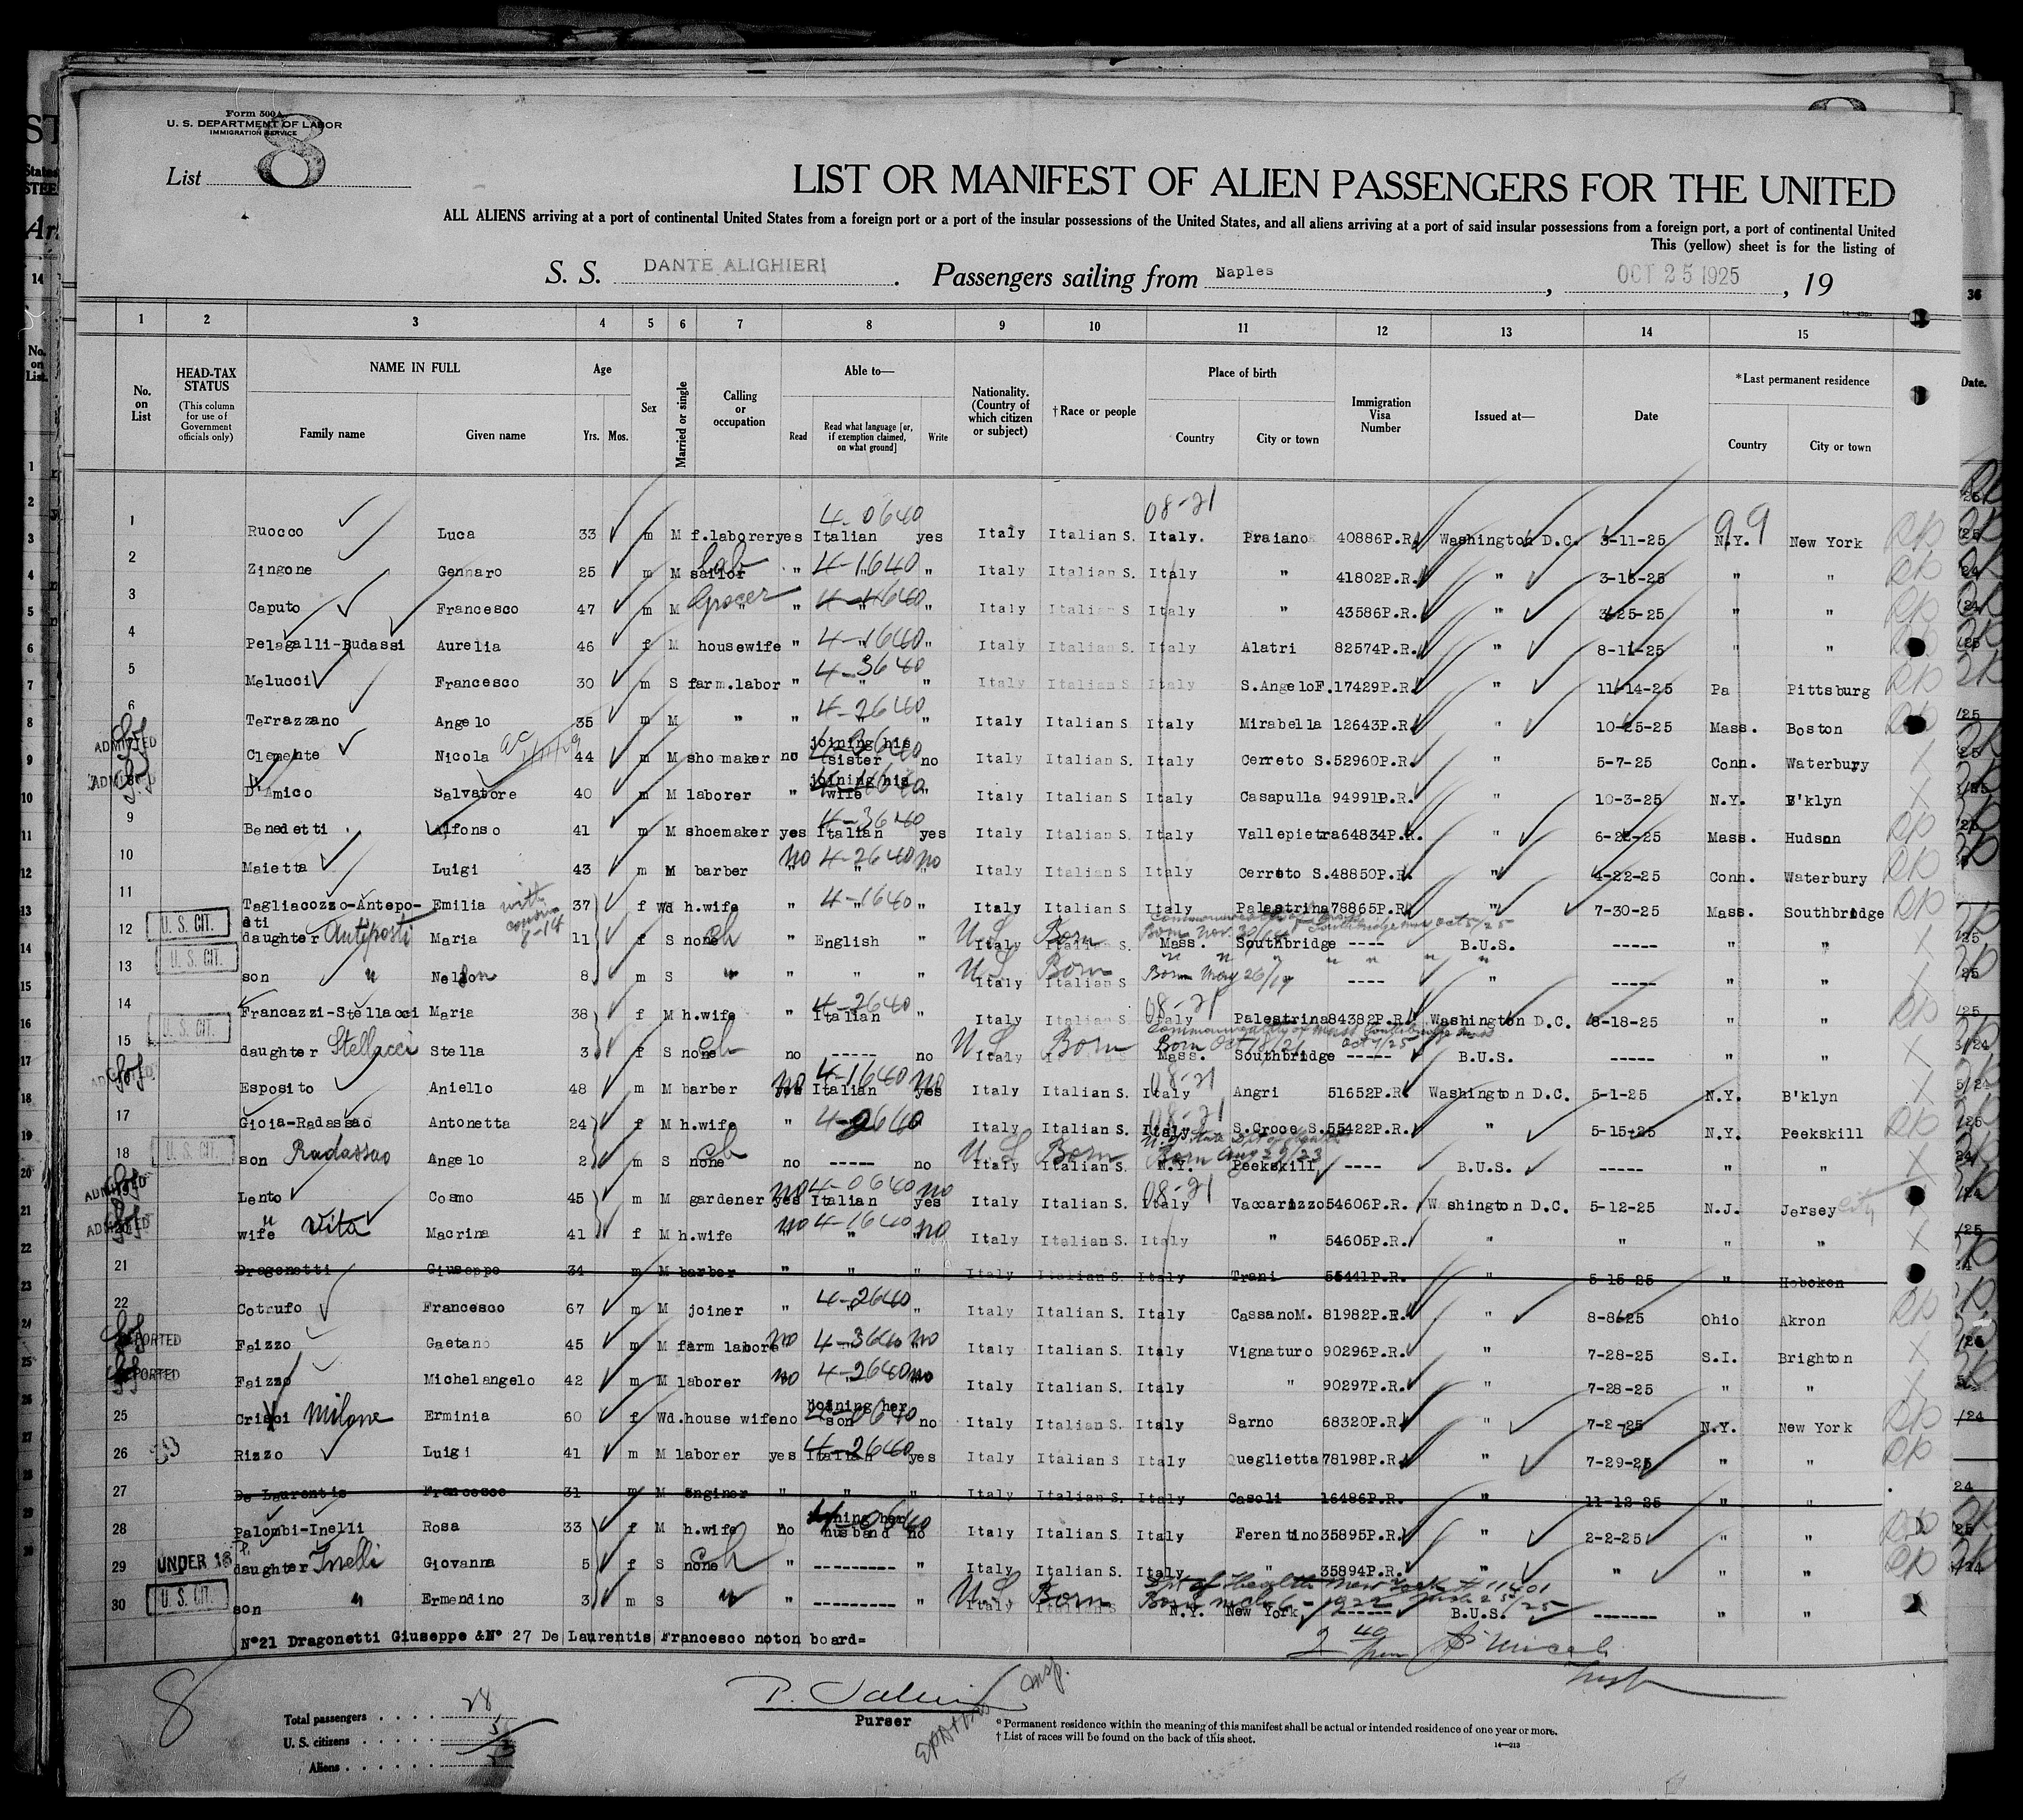 Form 500A
U. S. DEPARTMENT OF LABOR
IMMIGRATION SERVICE
List 8
LIST OR MANIFEST OF ALIEN PASSENGERS FOR THE UNITED
ALL ALIENS arriving at a port of continental United States from a foreign port or a port of the insular possessions of the United States, and all aliens arriving at a port of said insular possessions from a foreign port, a port of continental United
This (yellow) sheet is for the listing of
S. S. DANTE ALIGHIERI. Passengers sailing from Naples, OCT 25 1925, 19
1 2 3 4 5 6 7 8 9 10 11 12 13 14 15
No. on List
HEAD-TAX STATUS (This column for use of Government officials only)
NAME IN FULL Family name Given name
Age Yrs. Mos.
Sex
Married or single
Calling or occupation
Able to— Read Read what language [or, if exemption claimed, on what ground] Write
Nationality. (Country of which citizen or subject)
†Race or people
Place of birth Country City or town
Immigration Visa Number
Issued at—
Date
*Last permanent residence Country City or town
1 Ruocco Luca 33 m M f.laborer yes Italian 4-0640 yes Italy Italian S. 08-21 Italy. Praiano 40886P.R. Washington D.C. 3-11-25 99 N.Y. New York
2 Zingone Gennaro 25 m M sailor lab " 4-1640 " Italy Italian S. Italy " 41802P.R. " 3-16-25 " "
3 Caputo Francesco 47 m M Grocer " " 4-4640 " Italy Italian S Italy " 43586P.R. " 3-25-25 " "
4 Pelagalli-Budassi Aurelia 46 f M housewife " 4-1640 " Italy Italian S. Italy Alatri 82574P.R. " 8-11-25 " "
5 Melucci Francesco 30 m S farm.labor " 4-3640 " Italy Italian S Italy S.AngeloF. 17429P.R. " 11-14-25 Pa Pittsburg
6 Terrazzano Angelo 35 m M " " 4-2640 " Italy Italian S Italy Mirabella 12643P.R. " 10-25-25 Mass. Boston
ADMITTED Clemente Nicola 44 m M shomaker no joining his sister no Italy Italian S. Italy Cerreto S. 52960P.R. " 5-7-25 Conn. Waterbury
ADMITTED D'Amico Salvatore 40 m M laborer " joining his wife " Italy Italian S Italy Casapulla 94991P.R. " 10-3-25 N.Y. B'klyn
9 Benedetti Alfonso 41 m M shoemaker yes Italian 4-3640 yes Italy Italian S. Italy Vallepietra 64834P.R. " 6-22-25 Mass. Hudson
10 Maietta Luigi 43 m M barber no 4-2640 no Italy Italian S Italy Cerreto S. 48850P.R. " 4-22-25 Conn. Waterbury
11 Tagliacozzo-Antepo- Emilia 37 f Wd h.wife " 4-1640 " Italy Italian S Italy Palestrina 78865P.R. " 7-30-25 Mass. Southbridge
12 U. S. CIT. daughter Antiposti Maria 11 f S none Ch " English " U S Italy Born Mass. Southbridge ---- B.U.S. ----- " "
13 U. S. CIT. son " Nelson 8 m S " " " " U S Italy Born Italian S Born May 26/17 ---- " ----- " "
14 Francazzi-Stellacci Maria 38 f M h.wife " Italian 4-2640 " Italy Italian S 08-21 Italy Palestrina 84382P.R. Washington D.C. 8-18-25 " "
15 U. S. CIT. daughter Stellacci Stella 3 f S none Ch no ----- no U S Italy Born Mass. Southbridge ----- B.U.S. ----- " "
Esposito Aniello 48 m M barber yes no Italian 4-1640 yes no Italy Italian S. 08-21 Italy Angri 51652P.R. Washington D.C. 5-1-25 N.Y. B'klyn
17 Gioia-Radassao Antonetta 24 f M h.wife " 4-2640 Italy Italian S. 08-21 Italy S.Croce S. 55422P.R. " 5-15-25 N.Y. Peekskill
18 U. S. CIT. son Radassao Angelo 2 m S none Ch no ----- no U S Italy Born Italian S. Born Aug 29/23 N.Y. Peekskill ---- B.U.S. ----- " "
ADMITTED Lento Cosmo 45 m M gardener yes no Italian 4-0640 yes no Italy Italian S. 08-21 Italy Vaccarizzo 54606P.R. Washington D.C. 5-12-25 N.J. Jersey City
ADMITTED wife " Vita Macrina 41 f M h.wife no 4-1640 no Italy Italian S. Italy " 54605P.R. " " " "
21 Dragonetti Giuseppe 34 m M barber " " " Italy Italian S. Italy Trani 55441P.R. " 5-15-25 " Hoboken
22 Cotrufo Francesco 67 m M joiner " 4-2640 " Italy Italian S. Italy CassanoM. 81982P.R. " 8-8-25 Ohio Akron
DEPORTED Faizzo Gaetano 45 m M farm labore no 4-3640 no Italy Italian S. Italy Vignaturo 90296P.R. " 7-28-25 S.I. Brighton
DEPORTED Faizzo Michelangelo 42 m M laborer no 4-2640 no Italy Italian S. Italy " 90297P.R. " 7-28-25 " "
25 Crisci Milone Erminia 60 f Wd. house wife no joining her son no Italy Italian S. Italy Sarno 68320P.R. " 7-2-25 N.Y. New York
26 Rizzo Luigi 41 m M laborer yes Italian 4-2640 yes Italy Italian S Italy Queglietta 78198P.R. " 7-29-25 " "
27 De Laurentis Francesco 31 m M enginer " " " Italy Italian S. Italy Casoli 16486P.R. " 11-12-25 " "
28 Palombi-Inelli Rosa 33 f M h.wife no joining her husband no Italy Italian S. Italy Ferentino 35895P.R. " 2-2-25 " "
29 UNDER 18 daughter Inelli Giovanna 5 f S none Ch " --------- " Italy Italian S. Italy " 35894P.R. " " " "
30 U. S. CIT. son " Ermendino 3 m S " " --------- " U.S. Italy Born N.Y. New York ------ B.U.S. ------- " "
N°21 Dragonetti Giuseppe &N° 27 De Laurentis Francesco noton board=
8
Total passengers . . . . 28
U. S. citizens . . . . . 5
Aliens . . . . . .
Purser
* Permanent residence within the meaning of this manifest shall be actual or intended residence of one year or more.
† List of races will be found on the back of this sheet.
14—213